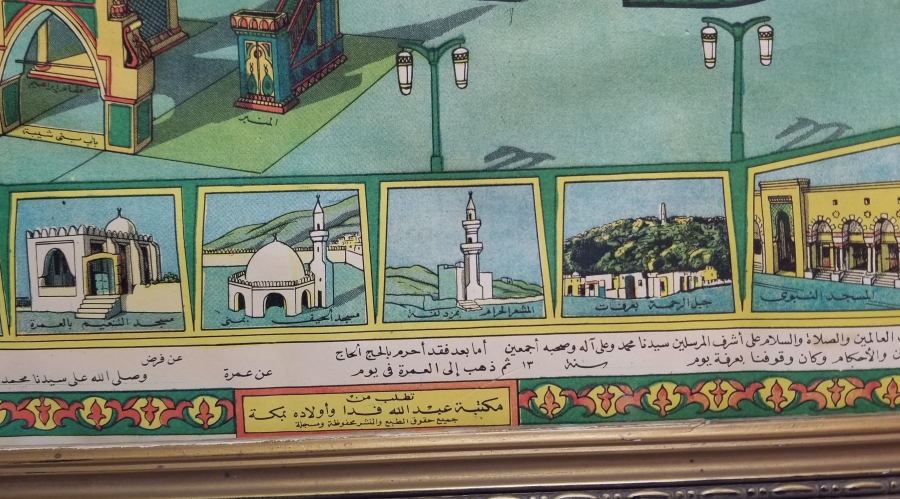 مقام ابراهيم
المنبر
باب بني شيبة
مسجد التنعيم بالعمرة
مسجد الخيف بمنى
المشعر الحرام بمزدلفة
جبل الرحمة بعرفات
المسجد النبوي
العالمين والصلاة والسلام على أشرف المرسلين سيدنا محمد وعلى آله وصحبه أجمعين أما بعد فقد أحرم بالحج الحاج عن فرض
والأحكام وكان وقوفنا بعرفة يوم سنة ١٣ ثم ذهب إلى العمرة في يوم عن عمرة وصلى الله على سيدنا محمد
تطلب من
مكتبة عبد الله فدا وأولاده بمكة
جميع حقوق الطبع والنشر محفوظة ومسجلة